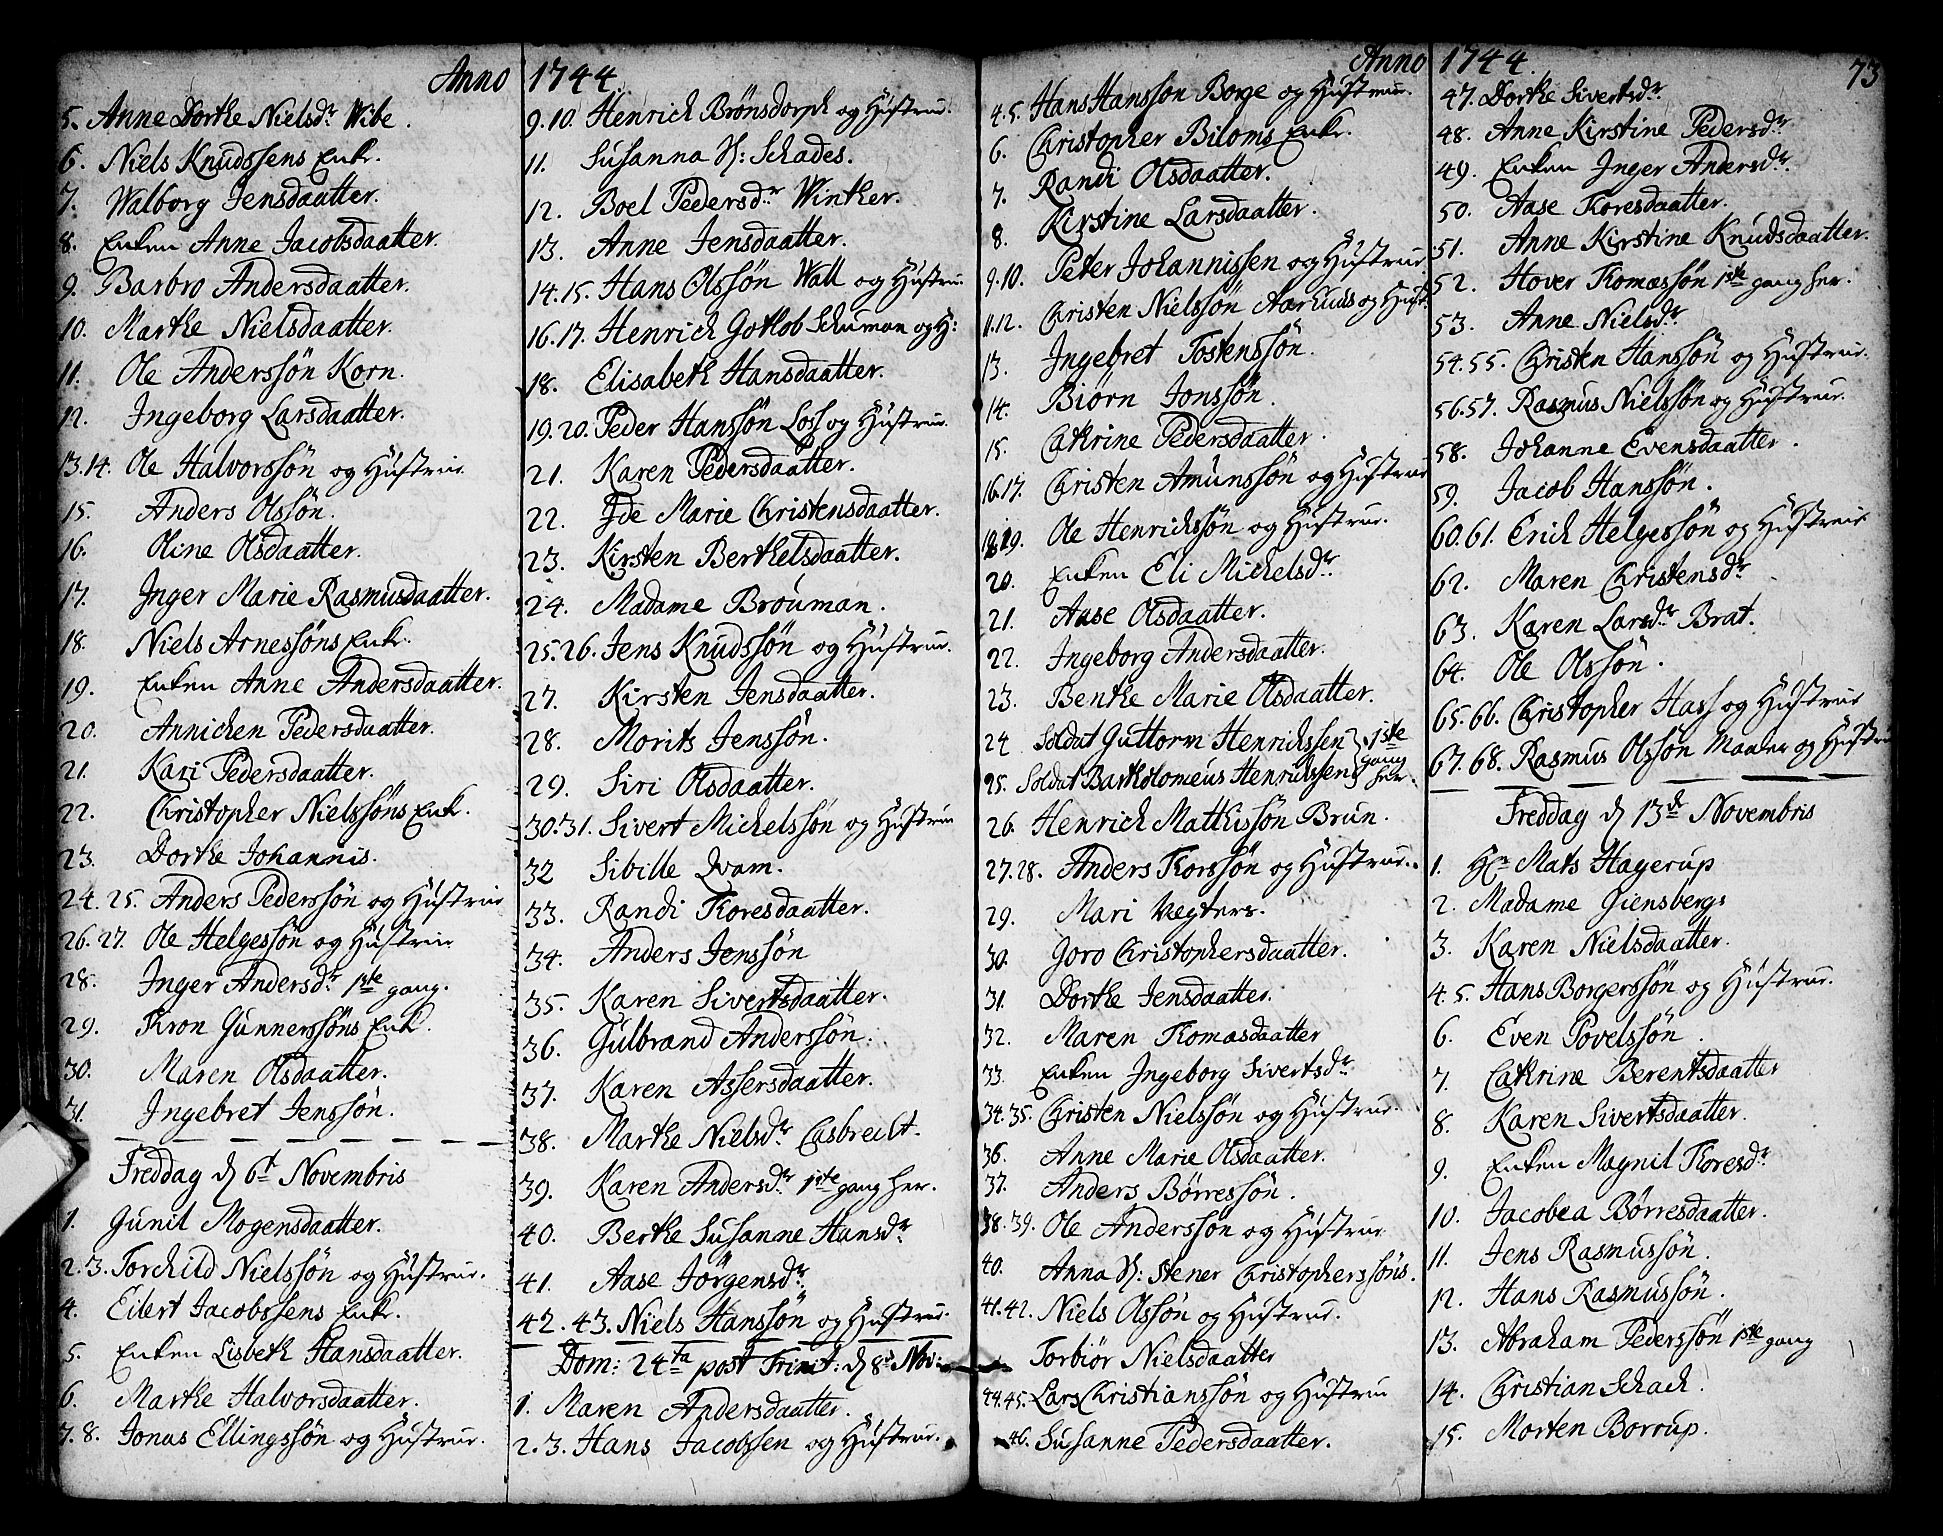 Anno 1744.
5. Anne Dorthe Nielsdr Wibe.
6. Niels Knudssens Enke.
7. Walborg Jensdaatter.
8. Enken Anne Jacobsdaatter.
9. Barbro Andersdaatter.
10. Marthe Nielsdaatter.
11. Ole Anderssøn Korn.
12. Ingeborg Larsdaatter.
13.14. Ole Halvorssøn og Hustrue
15. Anders Olssøn.
16. Oline Olsdaatter.
17. Inger Marie Rasmusdaatter.
18. Niels Arnessøns Enke.
19. Enken Anne Andersdaatter.
20. Annichen Pedersdaatter.
21. Kari Pedersdaatter.
22. Christopher Nielssøns Enk.
23. Dorthe Johannis.
24.25. Anders Pederssøn og Hustrue
26.27. Ole Helgessøn og Hustrue
28. Inger Andersdr 1ste gang.
29. Thron Gunnerssøns Enk.
30. Maren Olsdaatter.
31. Ingebret Jenssøn.
Freddag d 6t Novembris
1. Gunil Mogensdaatter.
2.3. Torchild Nielssøn og Hustrue.
4. Eilert Jacobssens Enke.
5. Enken Lisbeth Hansdaatter.
6. Marthe Halvorsdaatter.
7.8. Jonas Ellingssøn og Hustrue.
9.10. Henrich Brønsdorph og Hustrue.
11. Susanna S: Schades.
12. Boel Pedersdr Winther.
13. Anne Jensdaatter.
14.15. Hans Olssøn Wall og Hustrue.
16.17. Henrich Gotlob Schuman og H:
18. Elisabeth Hansdaatter.
19.20. Peder Hanssøn Loss og Hustrue.
21. Karen Pedersdaatter.
22. Ide Marie Christensdaatter.
23. Kirsten Berthelsdaatter.
24. Madame Brouman.
25.26. Jens Knudssøn og Hustrue.
27. Kirsten Jensdaatter.
28. Morits Jenssøn.
29. Siri Olsdaatter.
30.31. Sivert Michelssøn og Hustrue
32 Sibille Qvam.
33. Randi Thoresdaatter.
34. Anders Jenssøn
35. Karen Sivertsdaatter.
36. Gulbrand Anderssøn.
37. Karen Assersdaatter.
38. Marthe Nielsdr Casbrecht.
39. Karen Andersdr 1ste gang her.
40. Berthe Susanne Hansdr
41. Aase Jørgensdr
42.43. Niels Hanssøn og Hustrue.
Dom: 24ta post Trinit: d 8de Nov:
1. Maren Andersdaatter.
2.3. Hans Jacobssen og Hustrue.
Anno 1744. 73
4.5. Hans Hanssøn Borge og Hustrue.
6. Christopher Biloms Enke.
7. Randi Olsdaatter.
8. Kirstine Larsdaatter.
9.10. Peter Johannissen og Hustrue.
11.12. Christen Nielssøn Aarhuus og Hust.
13. Ingebret Tostenssøn.
14. Biørn Jonssøn.
15. Cathrine Pedersdaatter.
16.17. Christen Amunssøn og Hustrue
18.19. Ole Henrichssøn og Hustrue.
20. Enken Eli Michelsdr
21. Aase Olsdaatter.
22. Ingeborg Andersdaatter.
23. Benthe Marie Olsdaatter.
24 Soldat Guttorm Henrichssen } 1ste gang
25. Soldat Bartholomeus Henrichssen } her.
26. Henrich Matthissøn Brun.
27.28. Anders Thorssøn og Hustrue.
29. Mari Vegters.
30. Goro Christophersdaatter.
31. Dorthe Jensdaatter.
32. Maren Thomasdaatter
33. Enken Ingeborg Sivertsdr
34.35. Christen Nielssøn og Hustrue.
36. Anne Marie Olsdaatter.
37. Anders Børressøn.
38.39. Ole Anderssøn og Hustrue
40. Anna S: Stener Christopherssøns.
41.42. Niels Olssøn og Hustrue.
Torbiør Nielsdaatter
44.45. Lars Christianssøn og Hustrue
46. Susanne Pedersdaatter.
47. Dorthe Sivertsdr
48. Anne Kirstine Pedersdr
49. Enken Inger Andersdr.
50. Aase Thoresdaatter.
51. Anne Kirstine Knudsdaatter.
52. Hover Thomassøn 1ste gang her.
53. Anne Nielsdr
54.55. Christen Hanssøn og Hustrue.
56.57. Rasmus Nielssøn og Hustrue.
58. Johanne Evensdaatter.
59. Jacob Hanssøn.
60.61. Erich Helgessøn og Hustrue
62. Maren Christensdr
63. Karen Larsdr Brat.
64. Ole Olssøn.
65.66. Christopher Hass og Hustrue
67.68. Rasmus Olssøn Maaler og Hustrue
Freddag d 13de Novembris
1. Hr Mats Hagerup
2. Madame Giensbergs
3. Karen Nielsdaatter.
4.5. Hans Borgerssøn og Hustrue.
6. Even Povelssøn.
7. Cathrine Berentsdaatter
8. Karen Sivertsdaatter.
9. Enken Magnil Thoresdr
10. Jacobea Børresdaatter.
11. Jens Rasmussøn.
12. Hans Rasmussøn.
13. Abraham Pederssøn 1ste gang
14. Christian Schach.
15. Morten Borrup.